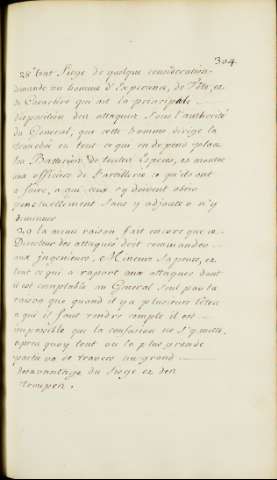 304
28° tout Siege de quelque consideration
demande un homme d'Experience, de Tête, et
de Caractere qui ait la principale
disposition des attaques sous l'authorité
du General, que cette homme dirige la
tranchée et tout ce qui en depend, place
les Batteries de toutes Especes, et montre
aux officiers de l'artillerie ce qu'ils ont
a faire, a qui ceux cy doivent obeir
ponctuellement sans y adjouter n'y
diminuer
29 la meme raison fait encore que ce
Directeur des attaques doit commander
aux ingenieurs, Mineurs Sapeurs, et
tout ce qui a raport aux attaques dont
il est comptable au General seul par la
raison que quand il y a plusieurs têtes
a qui il faut rendre compte il est
impossible que la confusion ne s'y mette,
apres quoy tout ou la plus grande
partie va de travers au grand
desavantage du Siege et des
troupes.